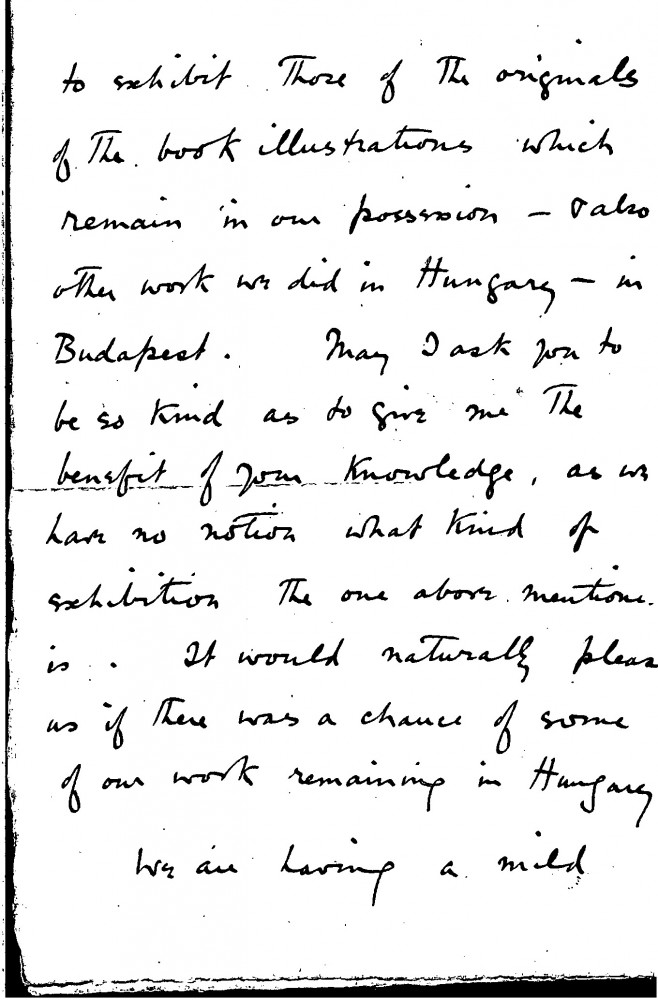 to exhibit those of the originals
of the book illustrations which
remain in our possession – & also
other work we did in Hungary – in
Budapest. May I ask you to
be so kind as to give me the
benefit of your knowledge, as we
have no notion what kind of
exhibition the one above mentione
is. It would naturally pleas
us if there was a chance of some
of our work remaining in Hungary
We are having a mild